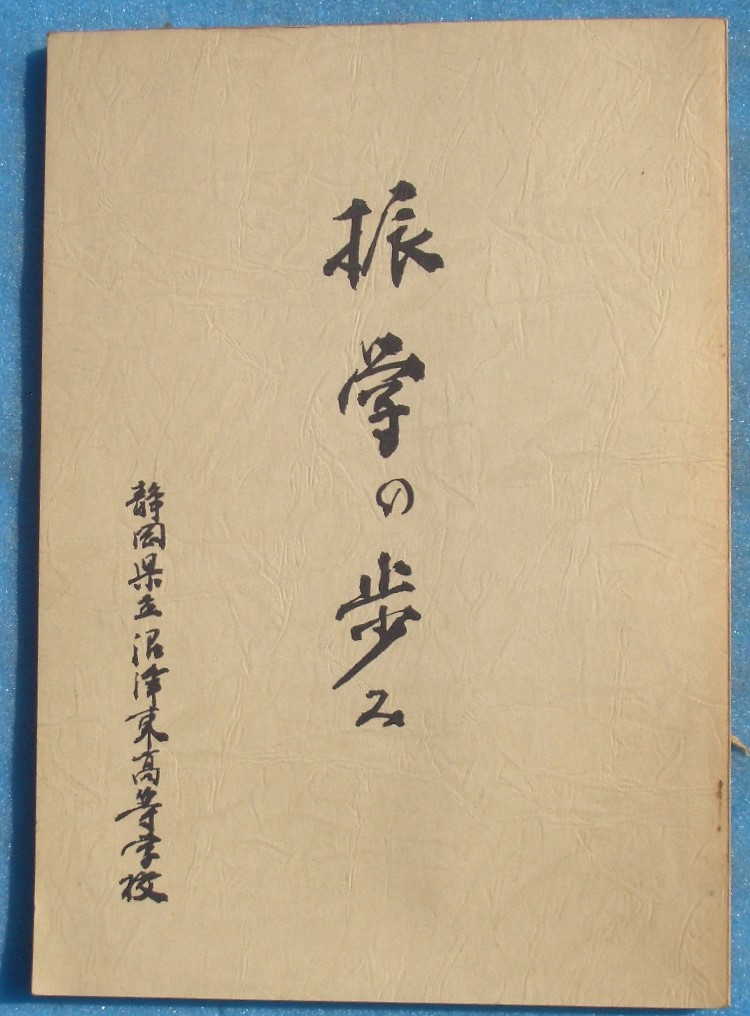 振学の歩み
静岡県立沼津東高等学校